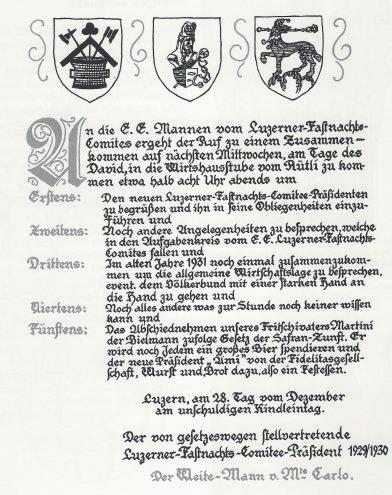 An die E. E. Mannen vom Luzerner-Fastnachts-
Comites ergeht der Ruf zu einem Zusammen-
kommen auf nächsten Mittwochen, am Tage des
David, in die Wirtshausstube vom Rütli zu kom-
men etwa halb acht Uhr abends um
Erstens: Den neuen Luzerner-Fastnachts-Comitee-Präsidenten
zu begrüßen und ihn in seine Obliegenheiten einzu-
führen und
Zweitens: Noch andere Angelegenheiten zu besprechen, welche
in den Aufgabenkreis vom E. E. Luzerner-Fastnachts-
Comites fallen und
Drittens: Im alten Jahre 1931 noch einmal zusammenzukom-
men um die allgemeine Wirtschaftslage zu besprechen,
event. dem Völkerbund mit einer starken Hand an
die Hand zu gehen und
Viertens: Noch alles andere was zur Stunde noch keiner wissen
kann und
Fünftens: Das Abschiednehmen unseres Fritschivaters Martini
der Bielmann zufolge Gesetz der Safran-Zunft. Er
wird noch Jedem ein großes Bier spendieren und
der neue Präsident „Ami" von der Fidelitasgesell-
schaft, Wurst und Brot dazu, also ein Festessen.
Luzern, am 28. Tag vom Dezember
am unschuldigen Kindleintag.
Der von gesetzeswegen stellvertretende
Luzerner-Fastnachts-Comitee-Präsident 1929/1930
Der Weite-Mann v. Mte Carlo.